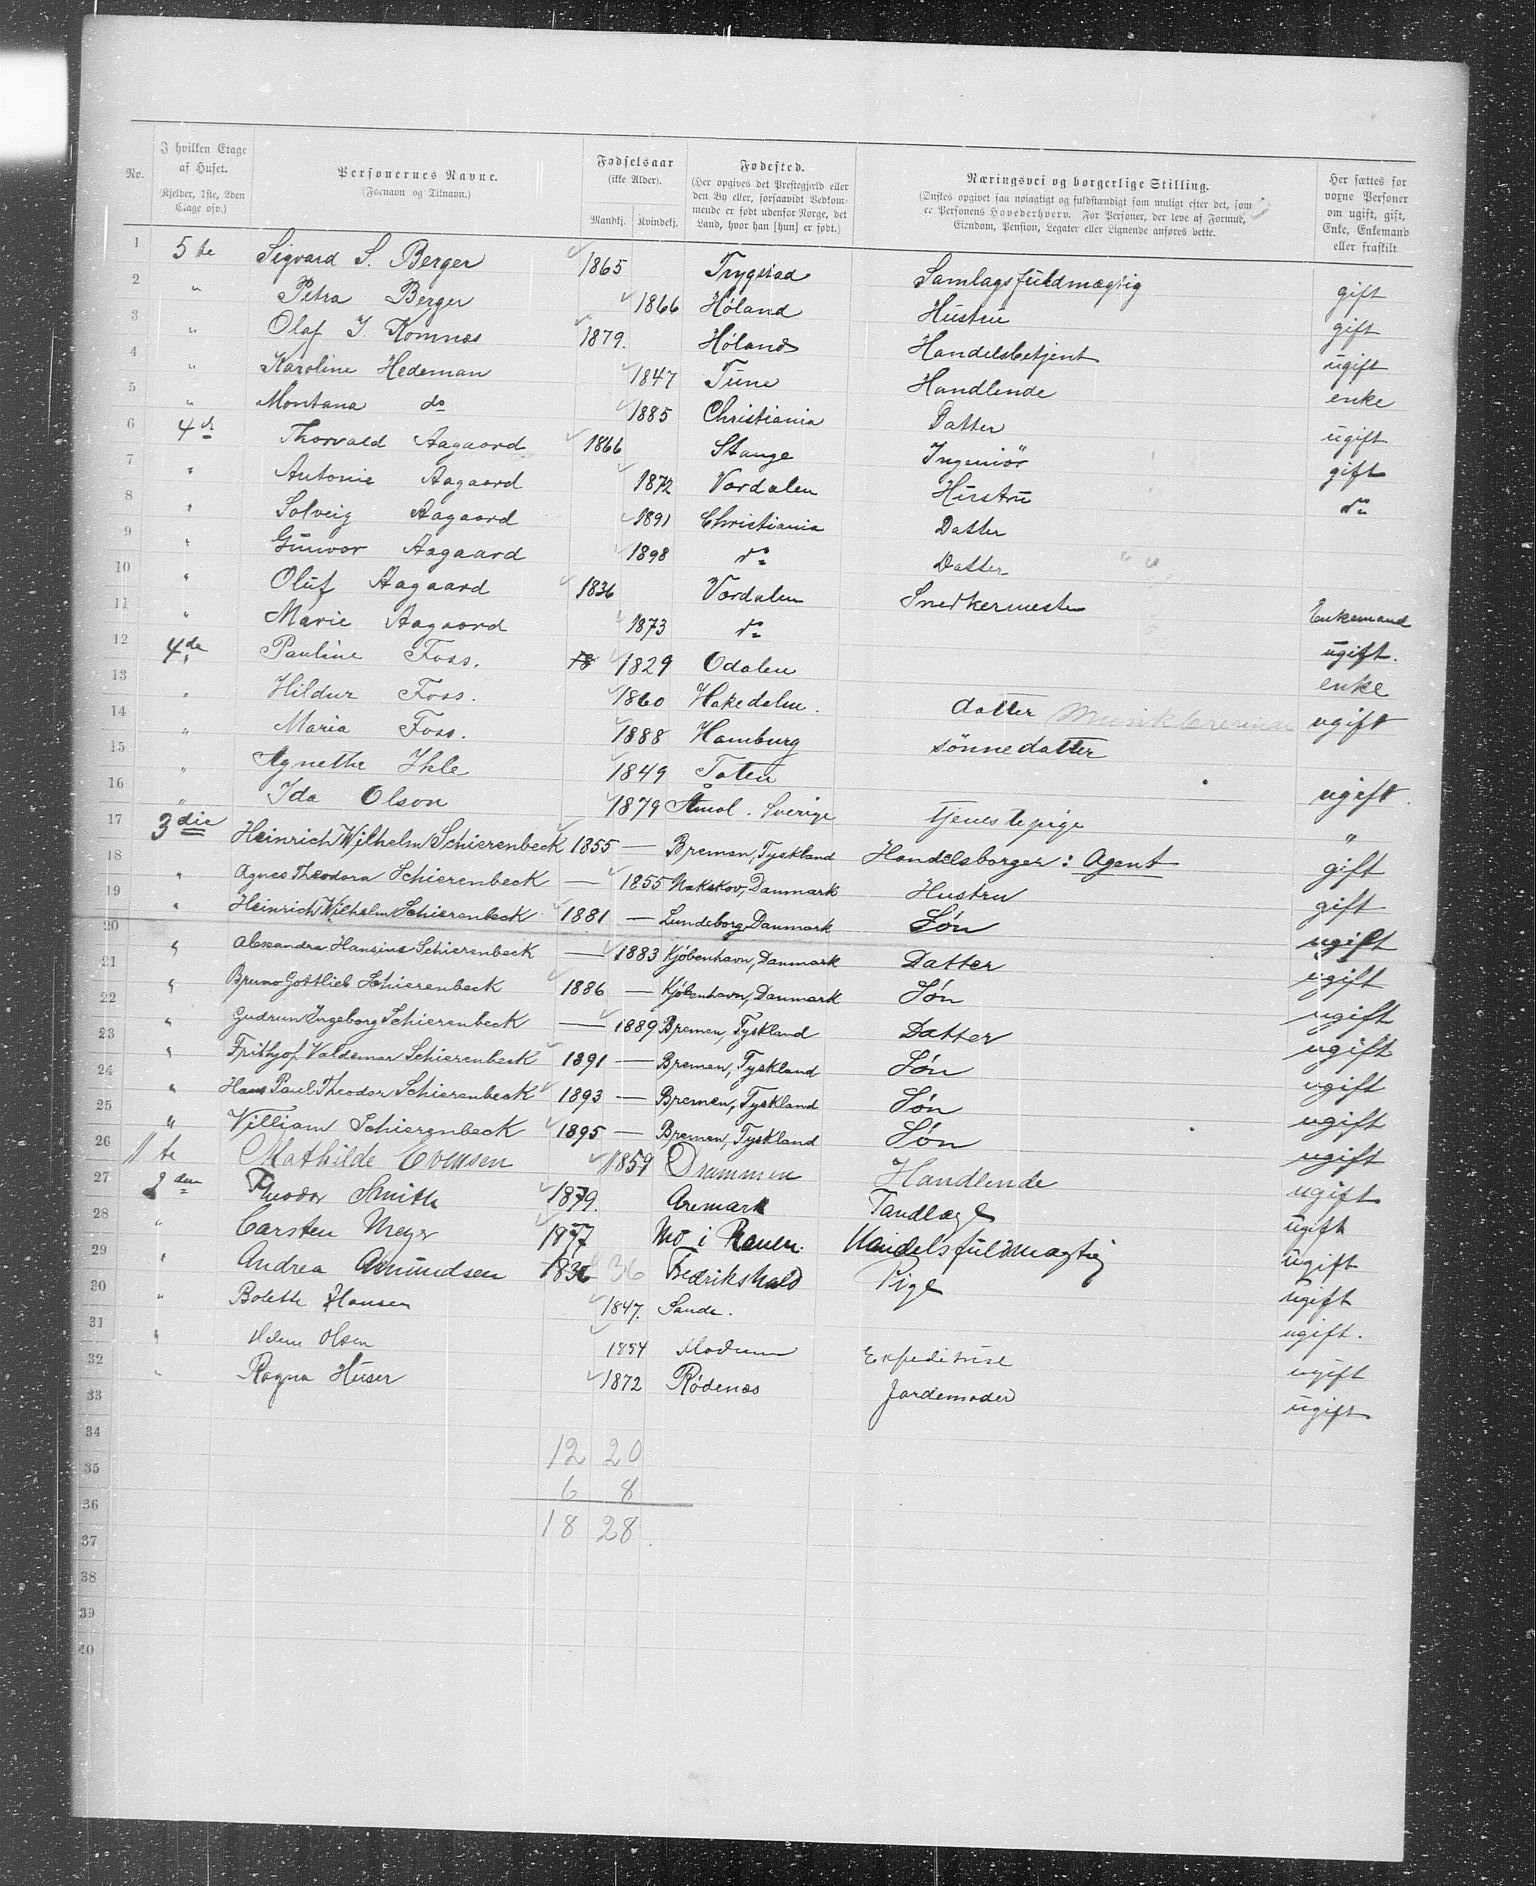 No. | I hvilken Etage af Huset. (Kjelder, 1ste, 2den Etage osv.) | Personernes Navne. (Fornavn og Tilnavn.) | Fødselsaar (ikke Alder). Mandkj. Kvindekj. | Fødested. (Her opgives det Prestegjæld eller den By eller, forsaavidt Vedkommende er født udenfor Norge, det Land, hvor han [hun] er født.) | Næringsvei og borgerlige Stilling. (Ønskes opgivet saa nøiagtigt og fuldstændigt som muligt efter det, som er Personens Hovederhverv. For Personer, der leve af Formue, Eiendom, Pension, Legater eller Lignende anføres dette.) | Her sættes for voxne Personer om ugift, gift, Enke, Enkemand eller fraskilt
1 5te Sigvard S. Berger 1865 Trygstad Samlagsfuldmægtig gift
2 " Petra Berger 1866 Høland Hustru gift
3 " Olaf J. Komnæs 1879. Høland Handelsbetjent ugift
4 " Karoline Hedeman 1847 Tune Handlende enke
5 " Montana do 1885 Christiania Datter ugift
6 4de Thorvald Aagaard 1866 Stange Ingeniör gift
7 " Antonie Aagaard 1872 Værdalen Hustru do
8 " Solveig Aagaard 1891 Christiania Datter
9 " Gunvor Aagaard 1898 do Datter
10 " Oluf Aagaard 1836 Værdalen Snedkermester Enkemand
11 " Marie Aagaard 1873 do ugift.
12 4de Pauline Foss. 18 1829 Odalen enke
13 " Hildur Foss. 1860 Hakedalen. datter Musiklærerinde ugift
14 " Maria Foss. 1888 Hamburg sønnedatter
15 " Agnethe Ihle 1849 Toten ugift.
16 " Ida Olson 1879 Åmol. Sverige tjenestepige "
17 3die Heinrich Wilhelm Schierenbeck 1855 — Bremen, Tyskland Handelsborger: Agent gift
18 " Agnes Theodora Schierenbeck — 1855 Nakskov, Danmark Hustru gift
19 " Heinrich Wilhelm Schierenbeck 1881 — Lundeborg, Danmark Søn ugift
20 " Alexandra Hansine Schierenbeck — 1883 Kjøbenhavn, Danmark Datter ugift
21 " Bruno Gottlieb Schierenbeck 1886 — Kjøbenhavn, Danmark Søn ugift
22 " Gudrun Ingeborg Schierenbeck — 1889 Bremen, Tyskland Datter ugift
23 " Frithjof Valdemar Schierenbeck 1891 — Bremen, Tyskland Søn ugift
24 " Hans Paul Theodor Schierenbeck 1893 — Bremen, Tyskland Søn ugift
25 " William Schierenbeck 1895 — Bremen, Tyskland Søn ugift
26 1te Mathilde Evensen 1859 Drammen Handlende ugift
27 2den Theodor Smith 1879. Aremark Tandlæge ugift
28 " Carsten Meyer 1877 Mo i Ranen. Handelsfuldmægtig ugift
29 " Andrea Amundsen 1836 36 Fredrikshald Pige ugift
30 " Bolette Hansen 1847. Sande. ugift.
31 " Helene Olsen 1854 Modum Expeditrise ugift
32 " Ragna Huser 1872 Rødenæs Jordemoder ugift
33
34 12 20
35 6 8
36 18 28
37
38
39
40